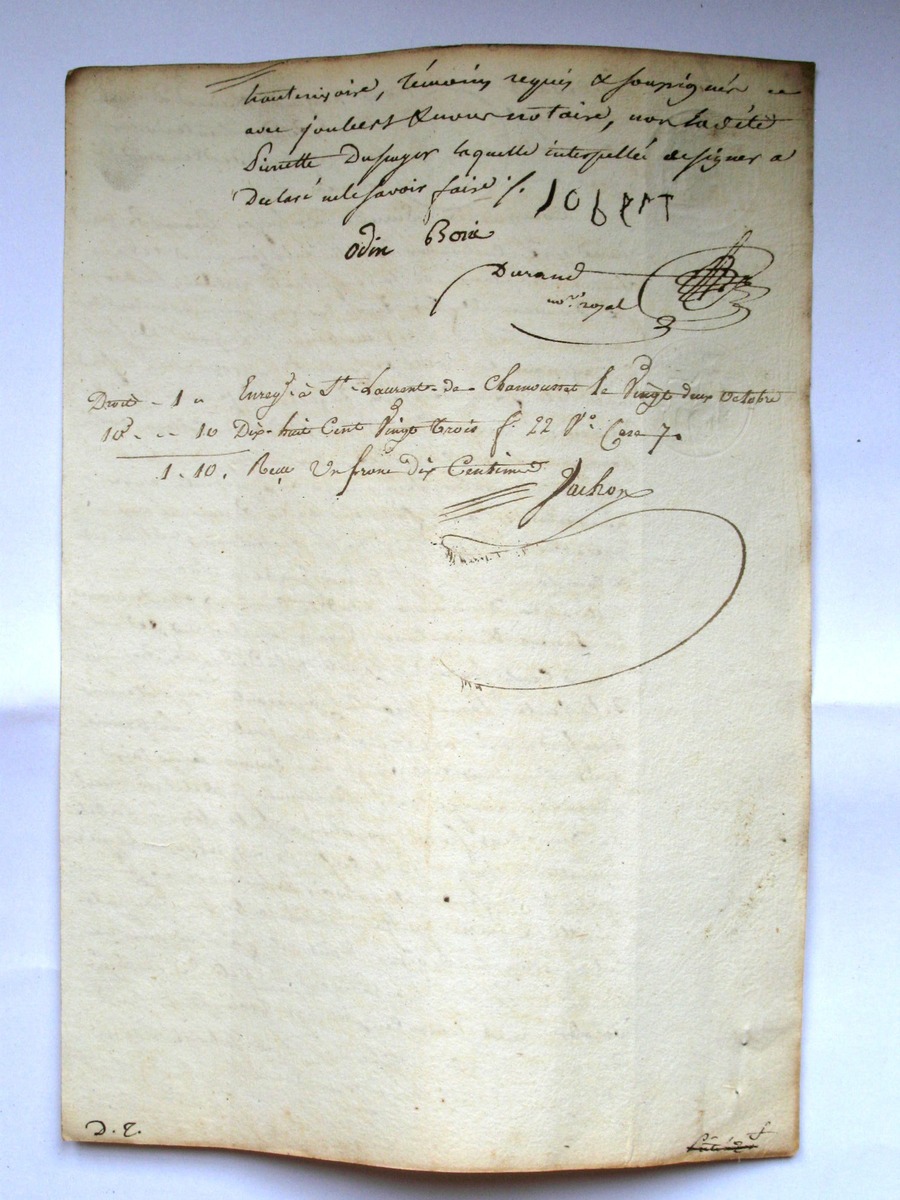 hauterivoire, témoins requis & soussignés
avec joubert & nous notaire, non ladite
Pierrette Dupuyer laquelle interpellée de signer a
Declaré ne le savoir faire ./.
Odin Borie
Durand
no.re royal
Droit - 1 " Enregé à St. Laurent-de-Chamousset le Vingt deux octobre
10e - " 10 Dix-huit Cent Vingt Trois f° 22 Vo Case 7.
1. 10. Reçu Un franc dix Centimes
Jachon
D. E.